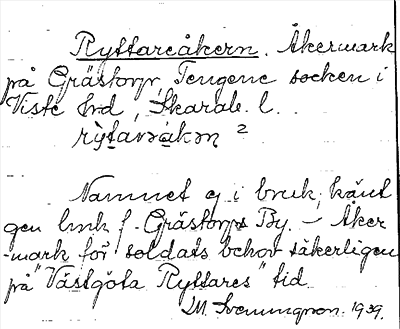 Ryttareåkern. Åkermark
på Grästorp, Tengene socken i
Viste hd, Skarab. l.
rỳtaråkɔn 2
Namnet ej i bruk, känt
gen lmk f. Grästorps By. – Åker
-mark för soldats behov säkerligen
på "Västgöta Ryttares" tid
M. Svenungson. 1939.